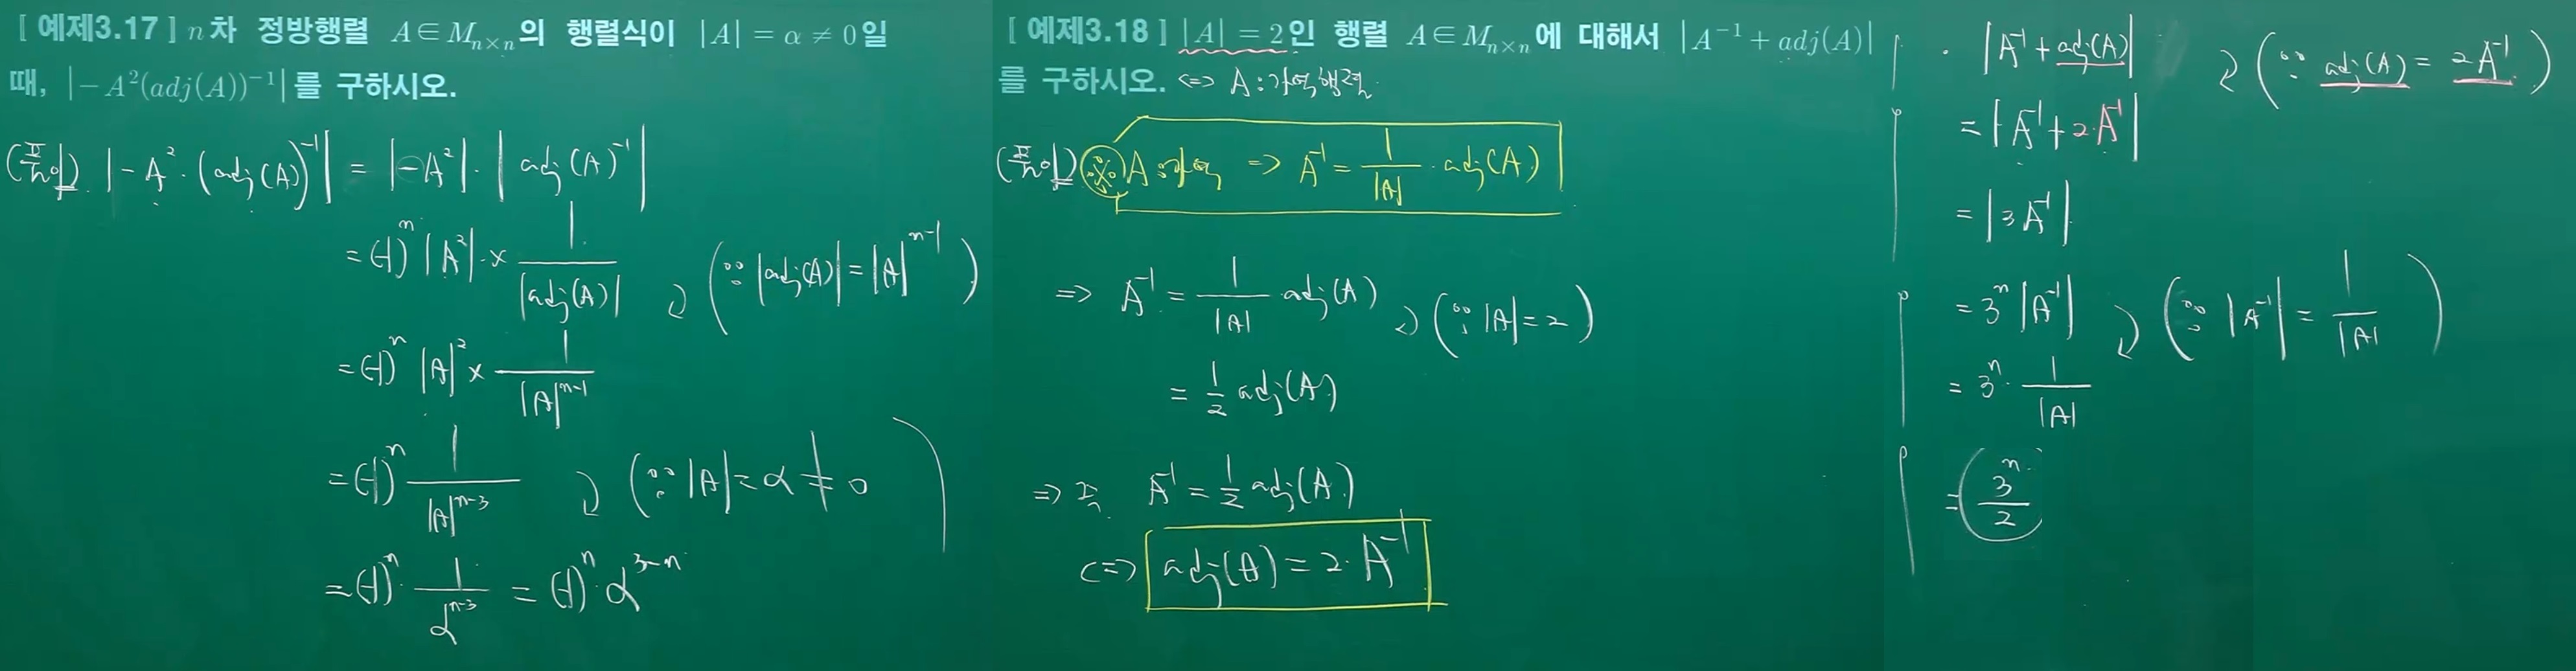 [ 예제3.17 ] n차 정방행렬 A∈M_{n×n}의 행렬식이 |A| = α ≠ 0일
때, |−A²(adj(A))⁻¹|를 구하시오.
(풀이). |−A²·(adj(A))⁻¹| = |−A²|·|adj(A)⁻¹|
= (−1)ⁿ |A²|· × 1/|adj(A)| (∵ |adj(A)| = |A|ⁿ⁻¹)
= (−1)ⁿ |A|² × 1/|A|ⁿ⁻¹
= (−1)ⁿ 1/|A|ⁿ⁻³ (∵ |A| = α ≠ 0)
= (−1)ⁿ· 1/αⁿ⁻³ = (−1)ⁿ·α³⁻ⁿ
[ 예제3.18 ] |A| = 2인 행렬 A∈M_{n×n}에 대해서 |A⁻¹ + adj(A)|
를 구하시오. <=> A : 가역행렬
(풀이) ※ A 가역 => A⁻¹ = 1/|A| · adj(A)
=> A⁻¹ = 1/|A| · adj(A) (∵ |A| = 2)
= 1/2 adj(A)
=> 즉. A⁻¹ = 1/2 adj(A)
<=> adj(A) = 2·A⁻¹
· |A⁻¹ + adj(A)| (∵ adj(A) = 2A⁻¹)
= |A⁻¹ + 2·A⁻¹|
= |3A⁻¹|
= 3ⁿ |A⁻¹| (∵ |A⁻¹| = 1/|A|)
= 3ⁿ· 1/|A|
= 3ⁿ/2